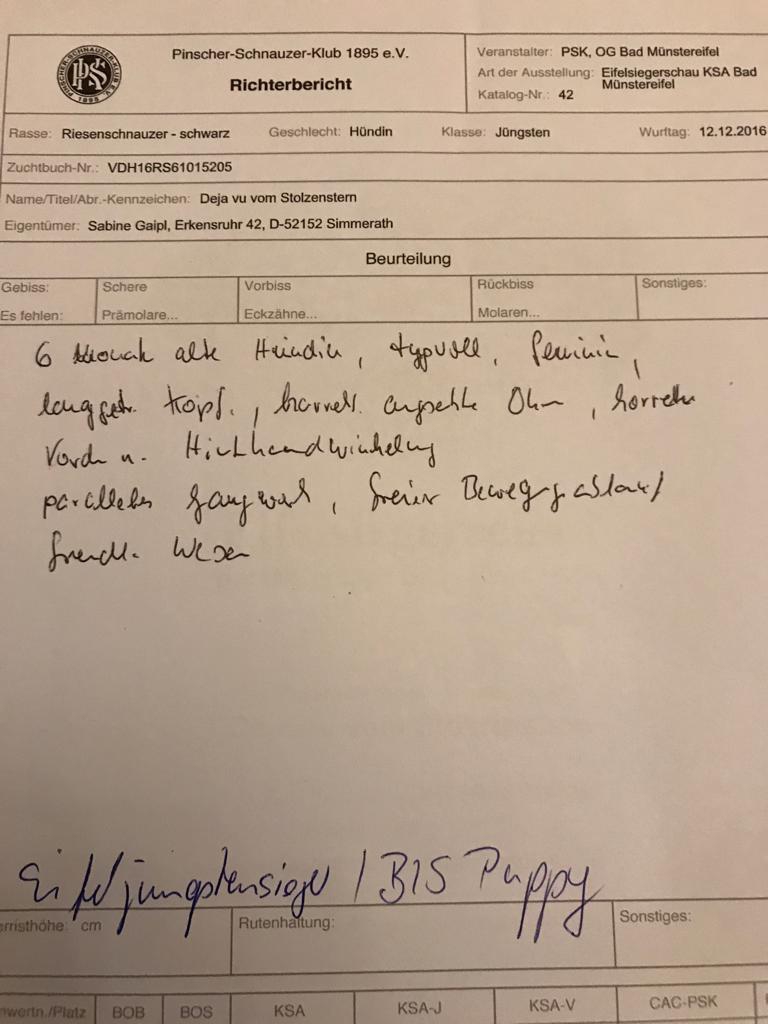 PINSCHER-SCHNAUZER-KLUB E.V.
PSK
1895
Pinscher-Schnauzer-Klub 1895 e.V.
Richterbericht
Veranstalter: PSK, OG Bad Münstereifel
Art der Ausstellung: Eifelsiegerschau KSA Bad
Münstereifel
Katalog-Nr.: 42
Rasse: Riesenschnauzer - schwarz Geschlecht: Hündin Klasse: Jüngsten Wurftag: 12.12.2016
Zuchtbuch-Nr.: VDH16RS61015205
Name/Titel/Abr.-Kennzeichen: Deja vu vom Stolzenstern
Eigentümer: Sabine Gaipl, Erkensruhr 42, D-52152 Simmerath
Beurteilung
Gebiss: Schere Vorbiss Rückbiss Sonstiges:
Es fehlen: Prämolare... Eckzähne... Molaren...
6 Monate alte Hündin, typvoll, feminin,
langgestr. Kopf, korrekt angesetzte Ohren, korrekte
Vorder u. Hinterhandwinkelung
paralleles Gangwerk, freier Bewegungsablauf
freundl. Wesen
Eifeljüngstensieger / BIS Puppy
erristhöhe: cm Rutenhaltung: Sonstiges:
nwertn./Platz BOB BOS KSA KSA-J KSA-V CAC-PSK